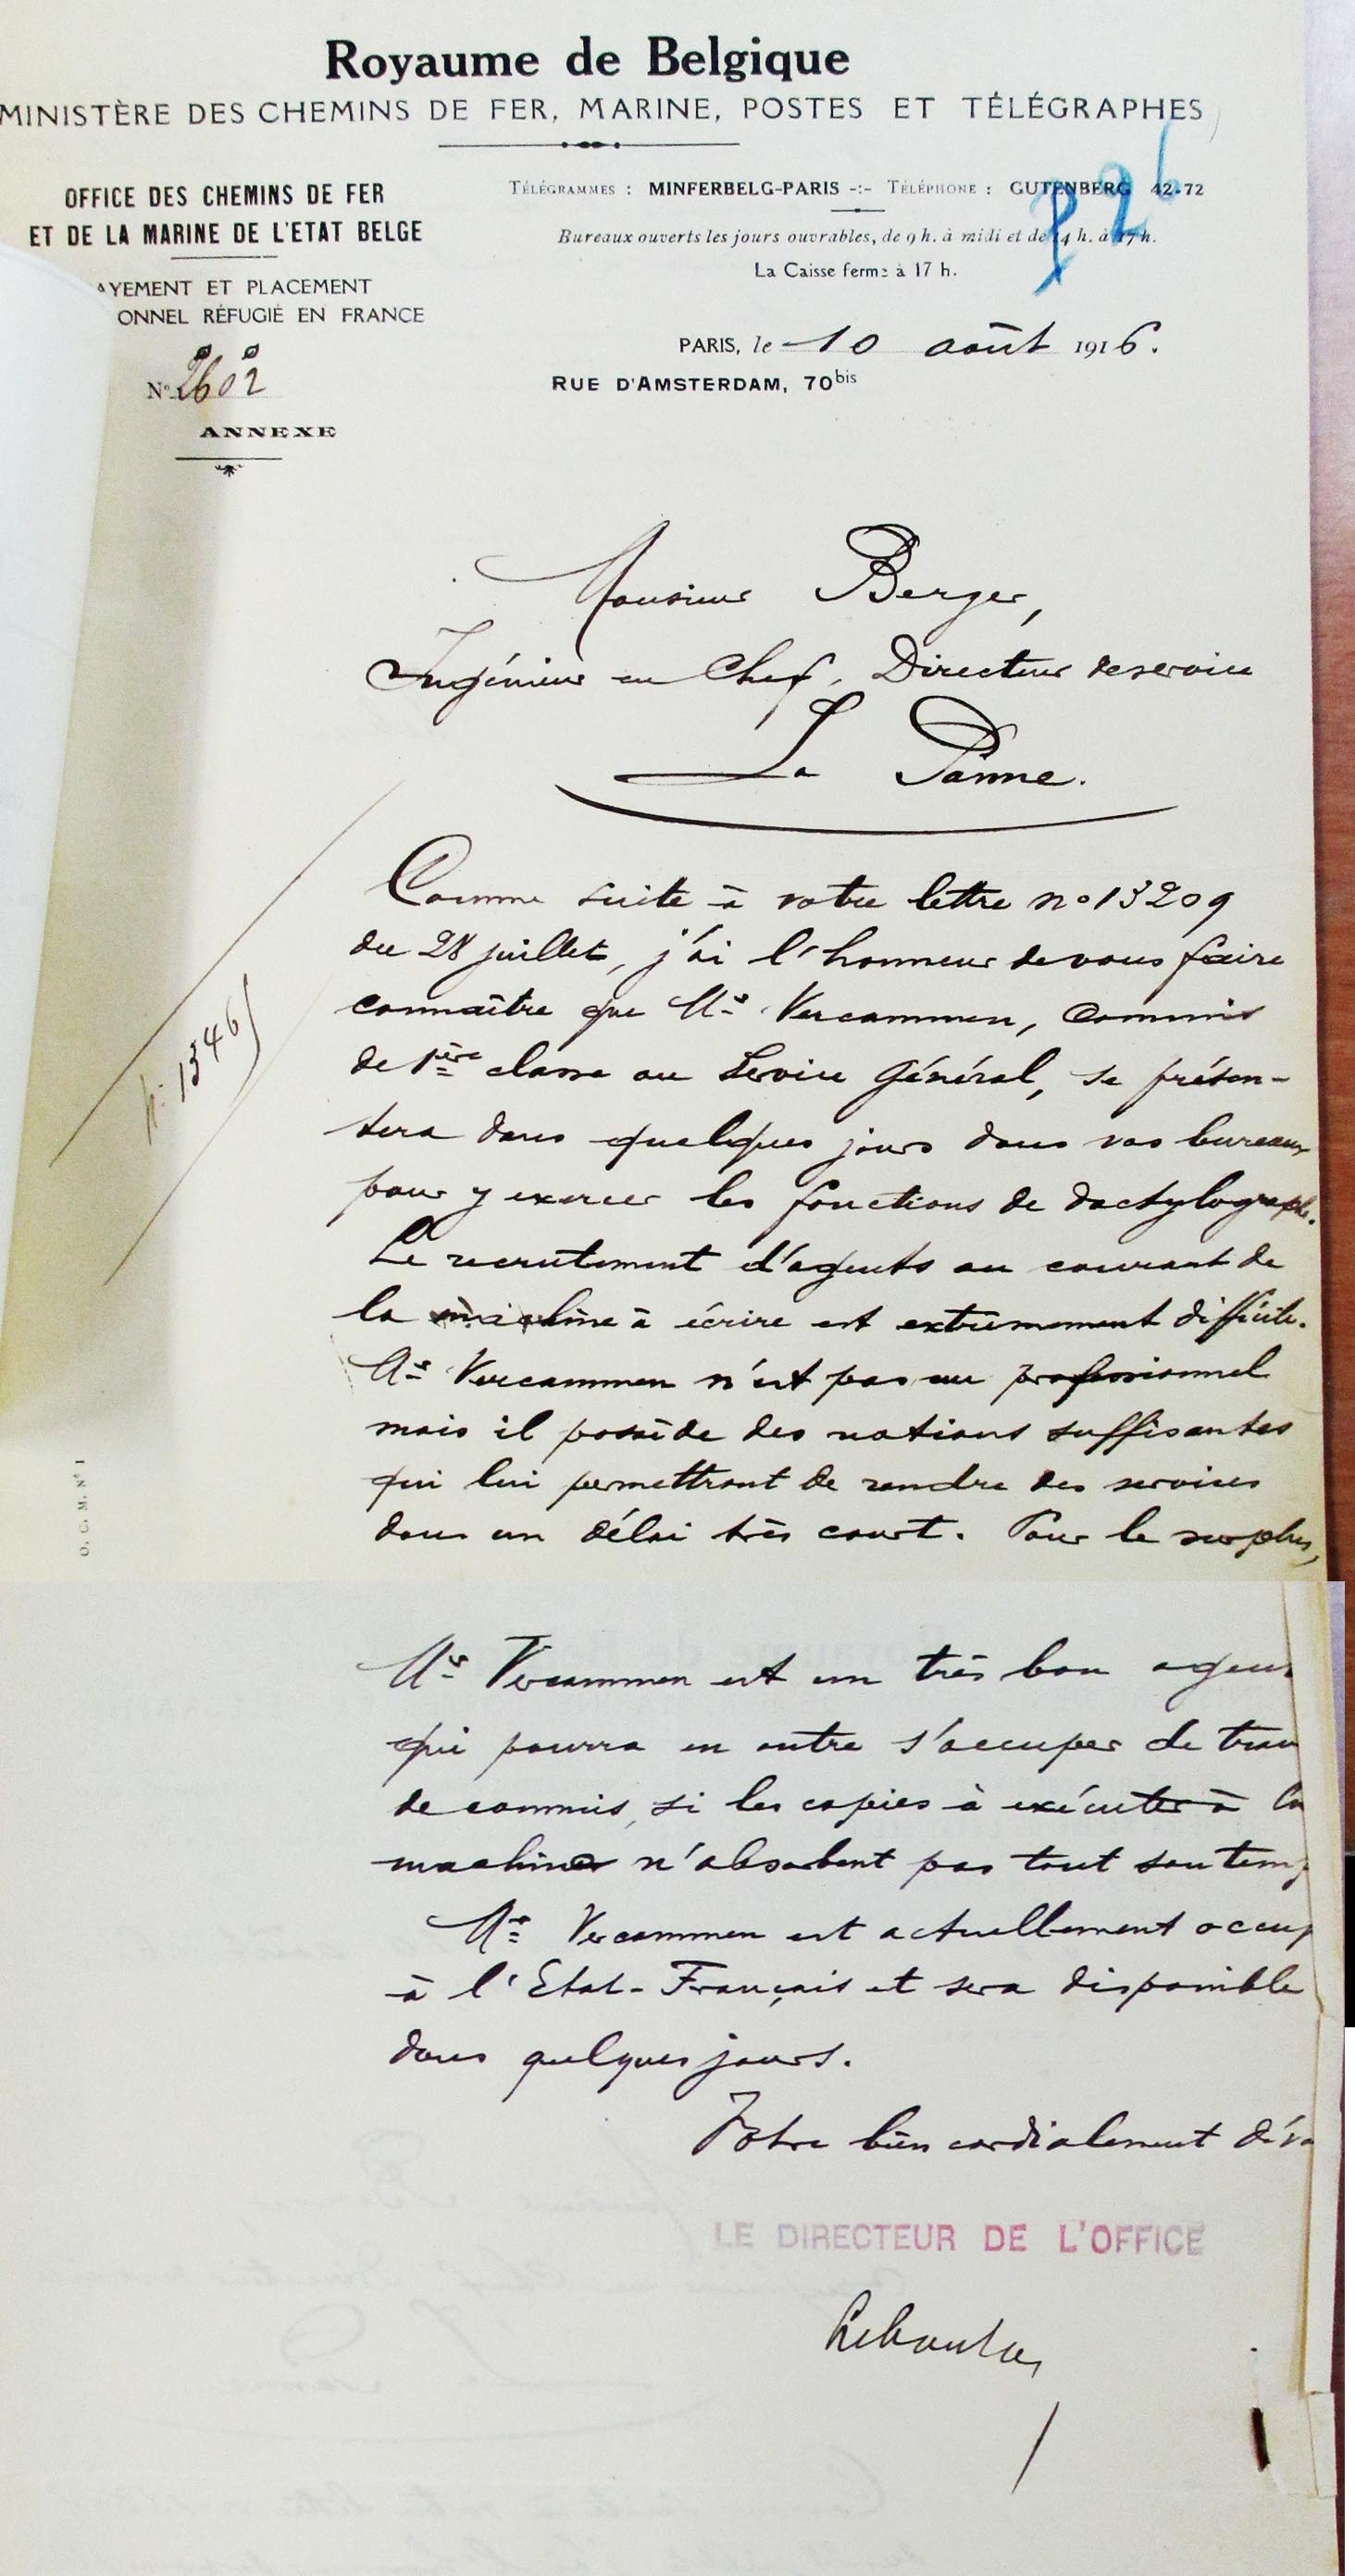 Royaume de Belgique
MINISTÈRE DES CHEMINS DE FER, MARINE, POSTES ET TÉLÉGRAPHES
OFFICE DES CHEMINS DE FER
ET DE LA MARINE DE L'ETAT BELGE
AYEMENT ET PLACEMENT
ONNEL RÉFUGIÉ EN FRANCE
N° 2602
ANNEXE
TÉLÉGRAMMES : MINFERBELG-PARIS -:- TÉLÉPHONE : GUTENBERG 42-72
Bureaux ouverts les jours ouvrables, de 9 h. à midi et de 14 h. à 17 h.
La Caisse ferme à 17 h.
PARIS, le 10 août 1916.
RUE D'AMSTERDAM, 70bis
Monsieur Berger,
Ingénieur en Chef, Directeur de service
La Panne.
Comme suite à votre lettre n° 13209
du 28 juillet, j'ai l'honneur de vous faire
connaître que Mr Vercammen, commis
de 1ère classe au Service Général, se présen-
tera dans quelques jours dans vos bureaux
pour y exercer les fonctions de dactylographe.
Le recrutement d'agents au courant de
la machine à écrire est extrêmement difficile.
Mr Vercammen n'est pas un professionnel
mais il possède des notions suffisantes
qui lui permettront de rendre des services
dans un délai très court. Pour le surplus,
1346
O. C. M. N° 1
Mr Vercammen est un très bon agent
qui pourra en outre s'occuper de trav
de commis, si les copies à exécuter à la
machine n'absorbent pas tout son temp
Mr Vercammen est actuellement occup
à l'Etat-Français et sera disponible
dans quelques jours.
Votre bien cordialement dévo
LE DIRECTEUR DE L'OFFICE